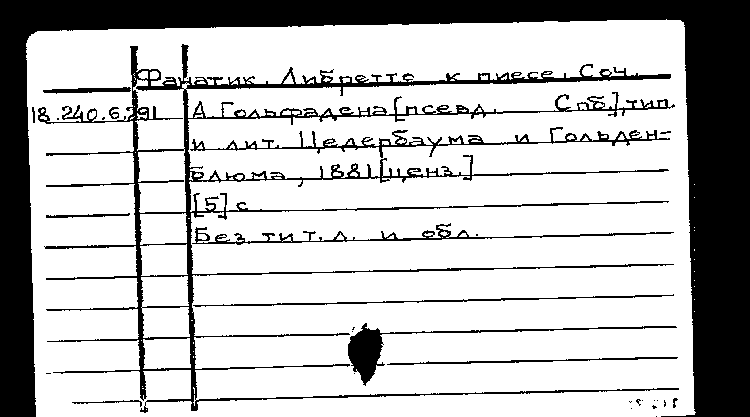 Фанатик. Либретто к пиесе. Соч.
18.240.6.291 А. Гольфадена [псевд. Спб.], тип.
и лит. Цедербаума и Гольден=
блюма, 1881 [ценз.]
[5] с
Без тит. л. и обл.